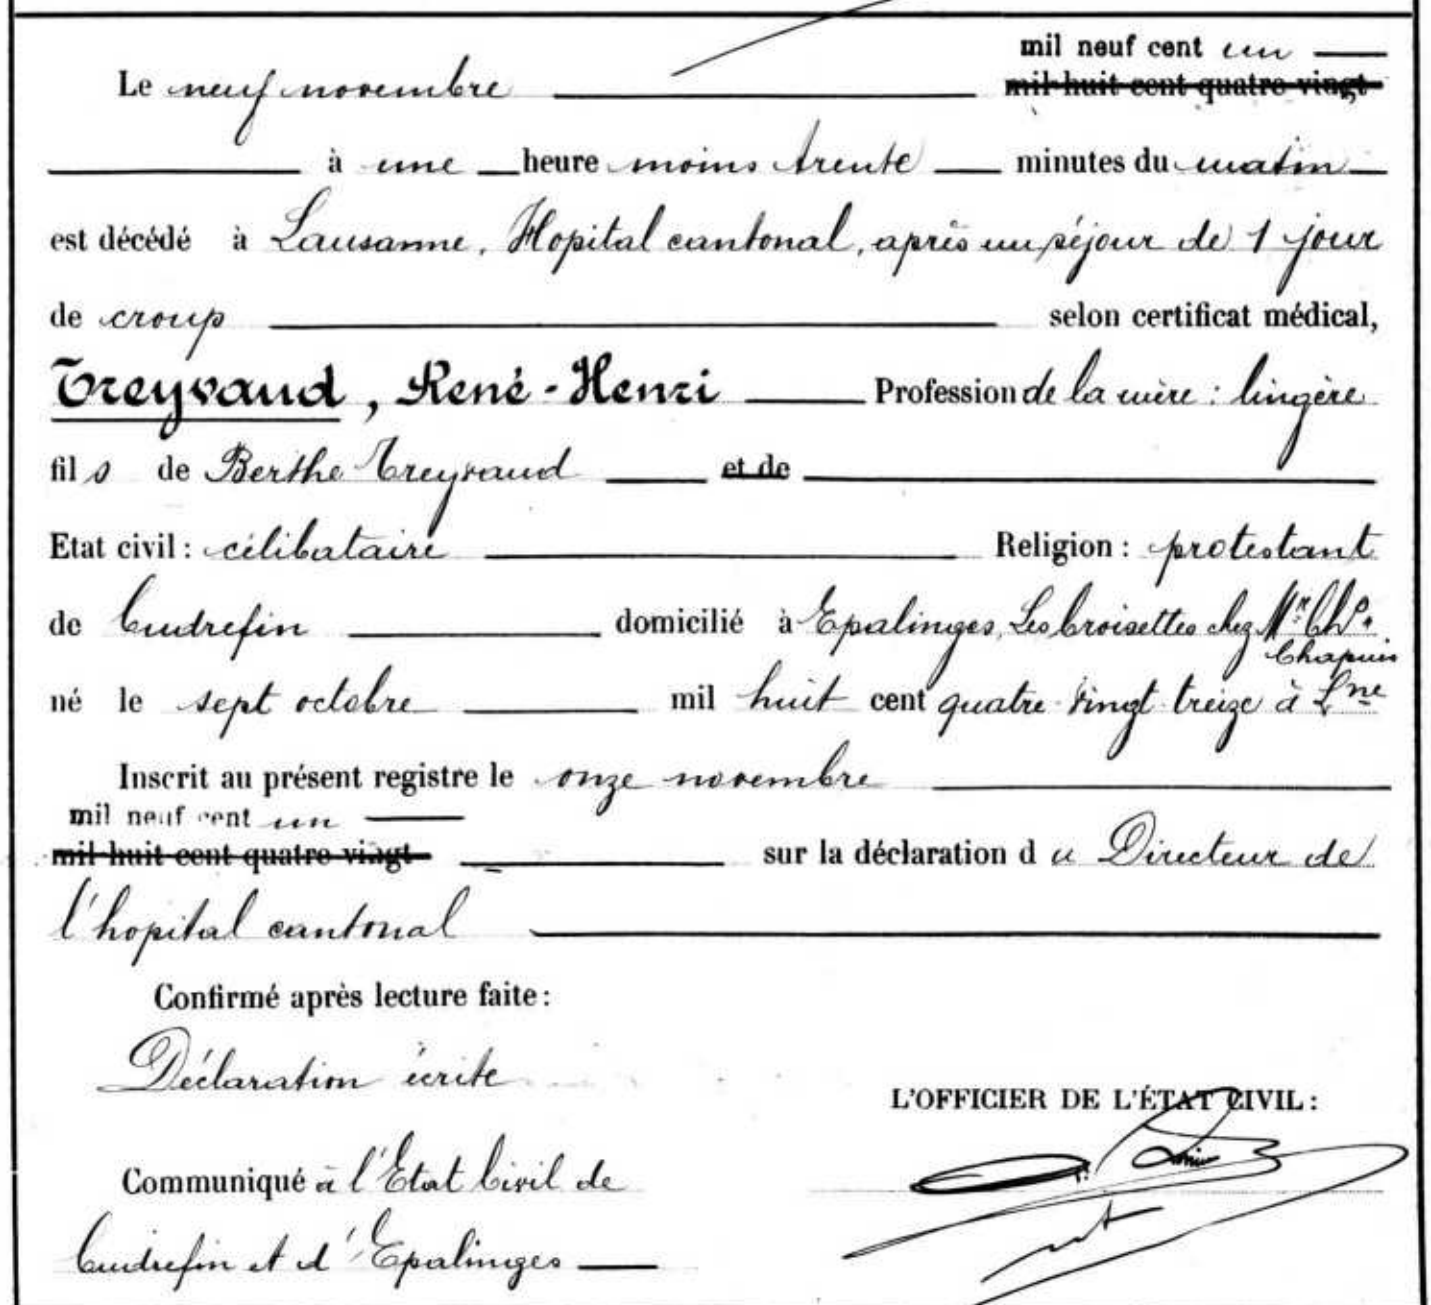 mil neuf cent un
Le neuf novembre mil huit cent quatre vingt
à une heure moins trente minutes du matin
est décédé à Lausanne, Hopital cantonal, après un séjour de 1 jour
de croup selon certificat médical,
Treyvaud, René-Henri Profession de la mère : lingère
fils de Berthe Treyvaud et de
Etat civil : célibataire Religion : protestant
de Cudrefin domicilié à Epalinges, Les Croisettes chez Mr. Chs.
Chapuis
né le sept octobre mil huit cent quatre vingt treize à Lne
Inscrit au présent registre le onze novembre
mil neuf cent un
mil huit cent quatre vingt sur la déclaration du Directeur de
l'hopital cantonal
Confirmé après lecture faite :
Déclaration écrite
L'OFFICIER DE L'ÉTAT CIVIL :
Communiqué à l'Etat Civil de
Cudrefin et d'Epalinges